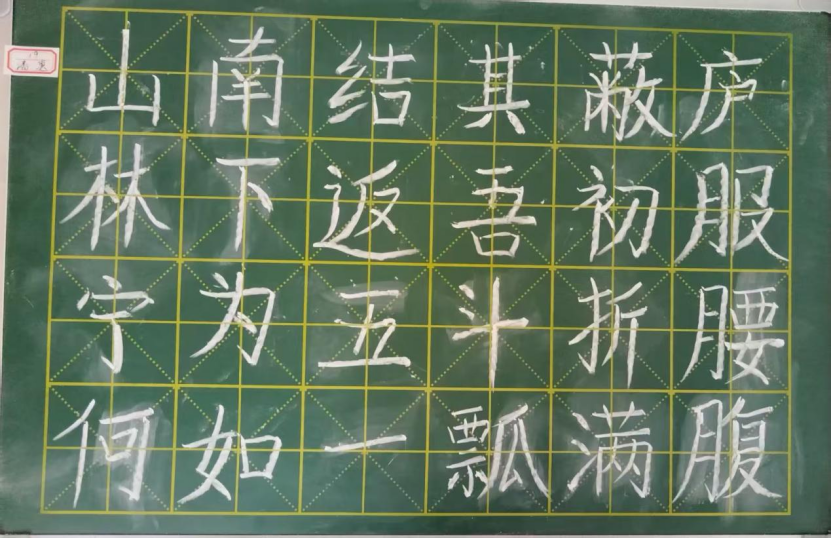 山南结其蔽庐
林下返吾初服
宁为五斗折腰
何如一瓢满腹